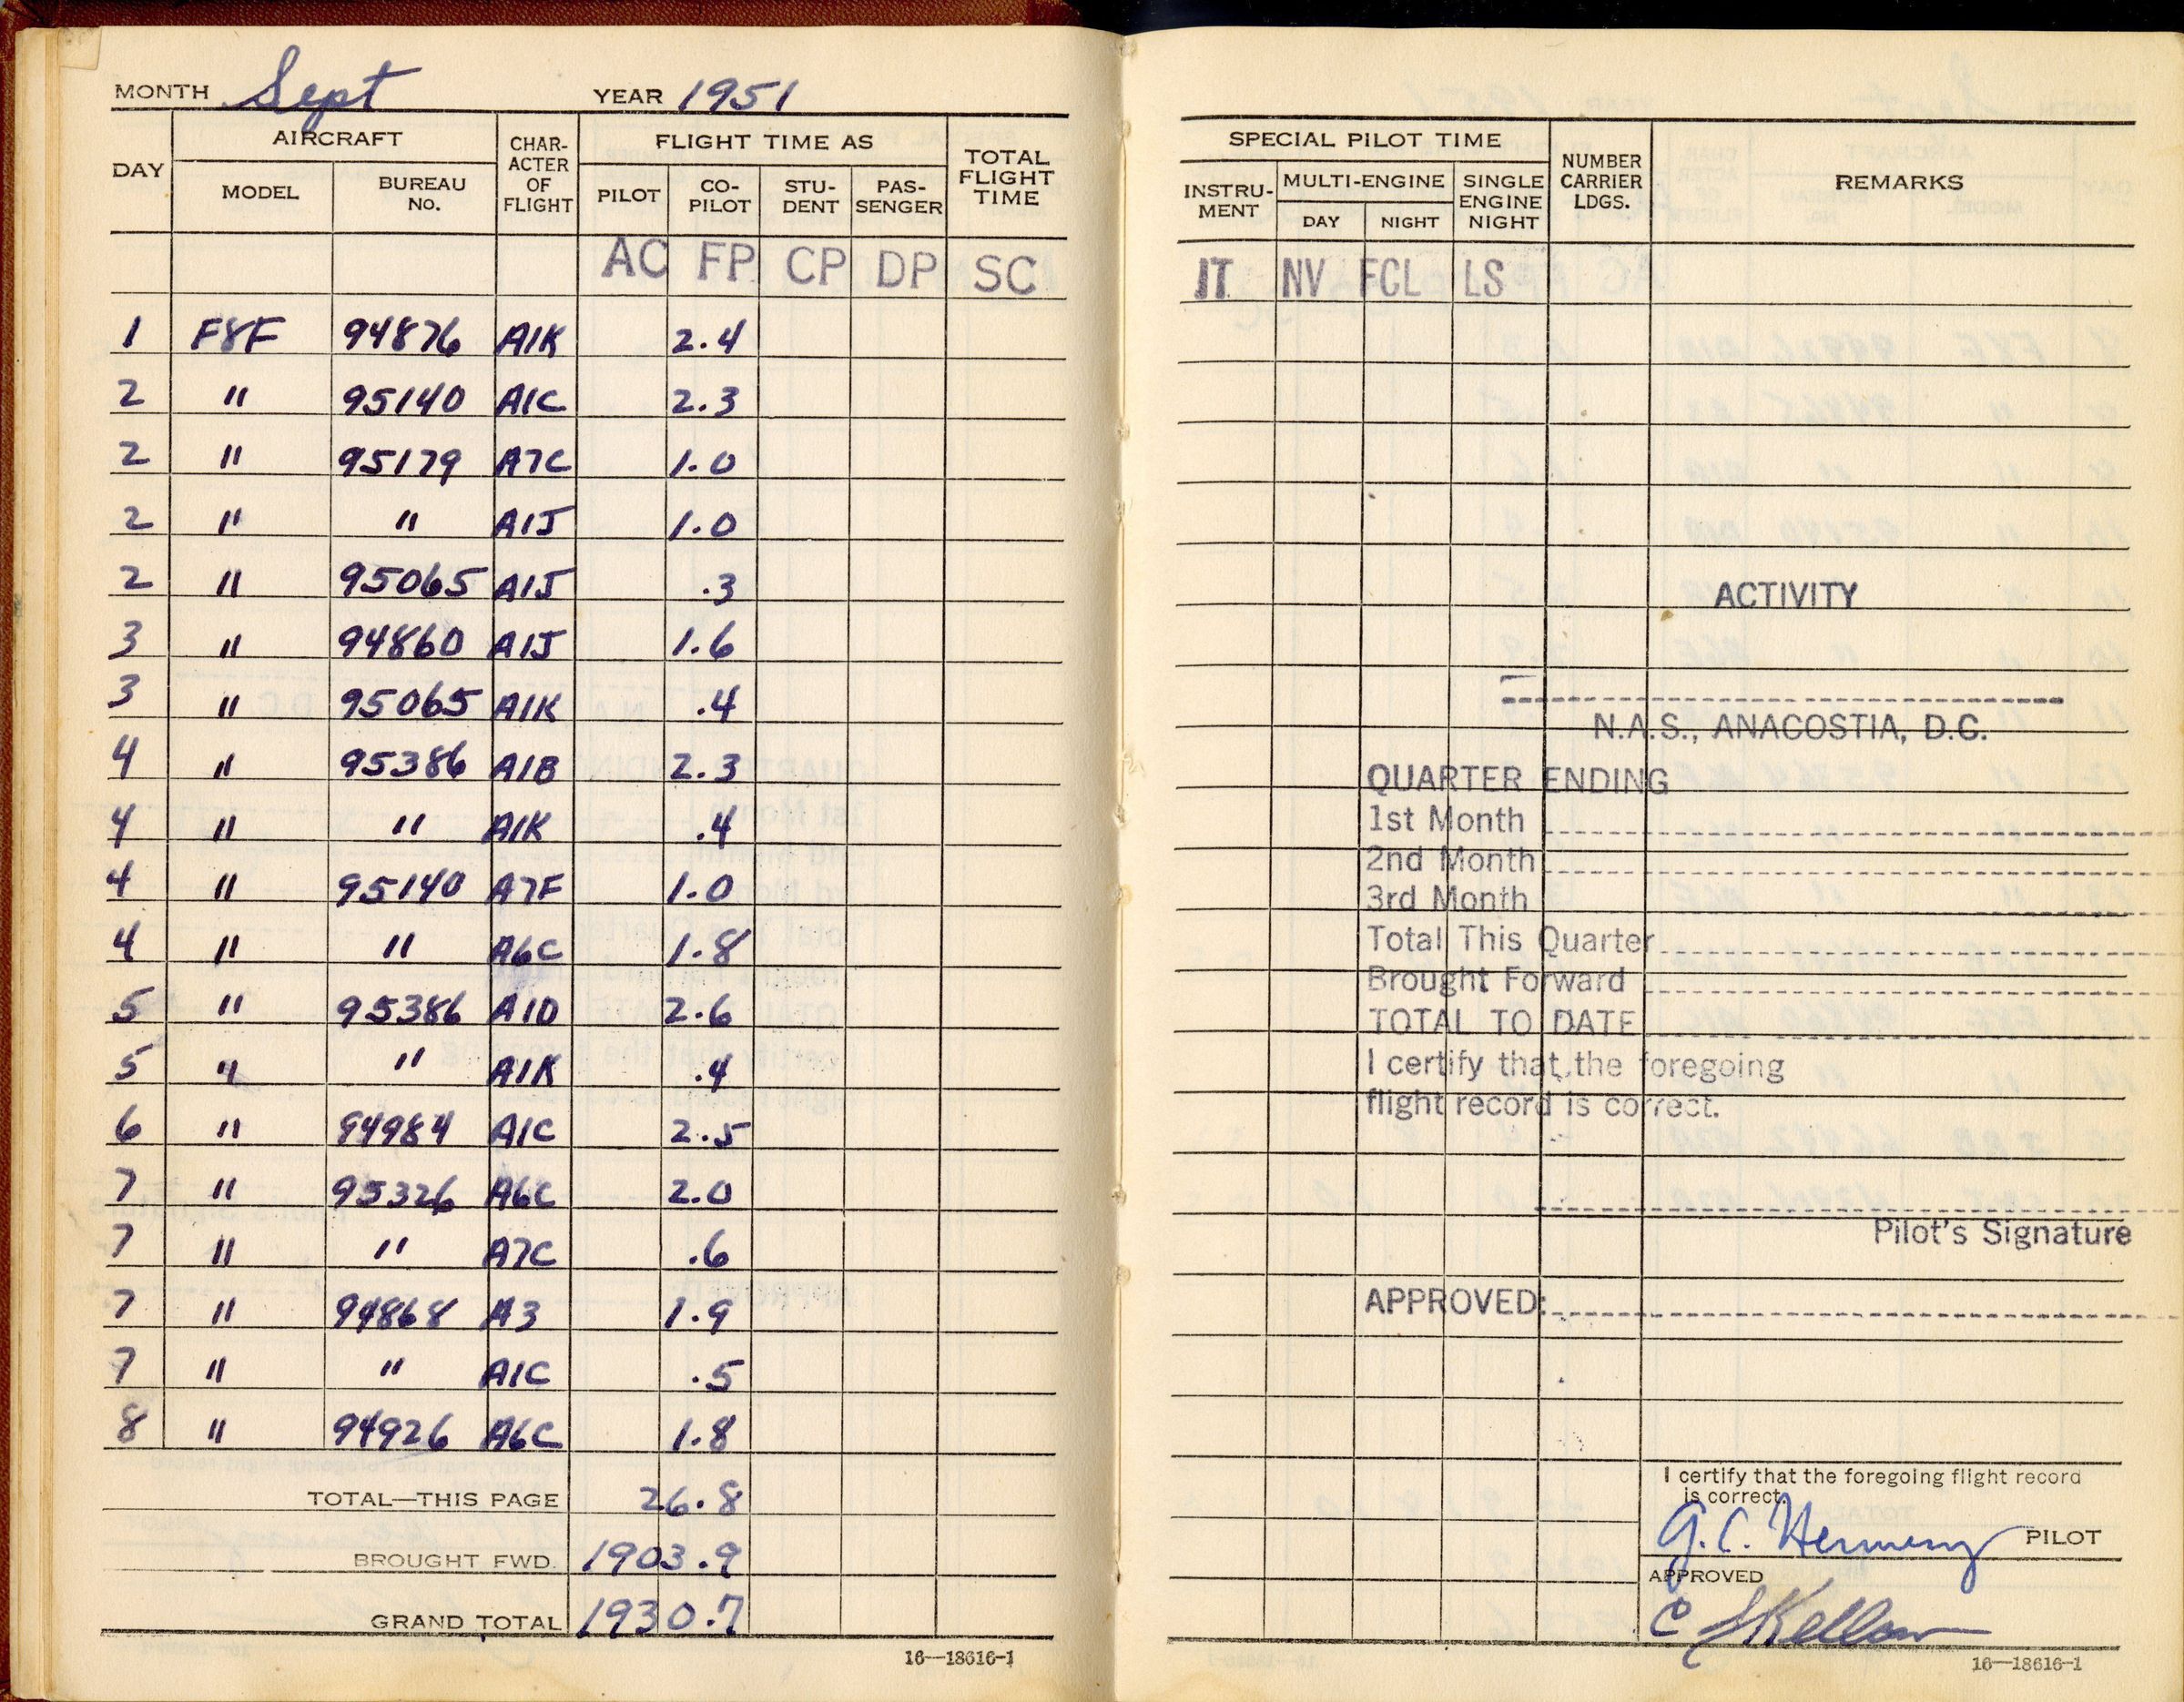 MONTH Sept YEAR 1951
DAY AIRCRAFT CHAR-ACTER OF FLIGHT FLIGHT TIME AS TOTAL FLIGHT TIME
MODEL BUREAU No. PILOT CO-PILOT STU-DENT PAS-SENGER
AC FP CP DP SC
1 F8F 94876 A1K 2.4
2 " 95140 A1C 2.3
2 " 95179 A7C 1.0
2 " " A1J 1.0
2 " 95065 A1J .3
3 " 94860 A1J 1.6
3 " 95065 A1K .4
4 " 95386 A1B 2.3
4 " " A1K .4
4 " 95140 A7F 1.0
4 " " A6C 1.8
5 " 95386 A1D 2.6
5 " " A1K .4
6 " 94984 A1C 2.5
7 " 95326 A6C 2.0
7 " " A7C .6
7 " 94868 A3 1.9
7 " " A1C .5
8 " 94926 A6C 1.8
TOTAL—THIS PAGE 26.8
BROUGHT FWD. 1903.9
GRAND TOTAL 1930.7
16—18616-1
SPECIAL PILOT TIME NUMBER CARRIER LDGS. REMARKS
INSTRU-MENT MULTI-ENGINE SINGLE ENGINE NIGHT
DAY NIGHT
IT NV FCL LS
ACTIVITY
N.A.S., ANACOSTIA, D.C.
QUARTER ENDING
1st Month
2nd Month
3rd Month
Total This Quarter
Brought Forward
TOTAL TO DATE
I certify that the foregoing
flight record is correct.
Pilot's Signature
APPROVED:
I certify that the foregoing flight record
is correct.
G.C. PILOT
APPROVED
16—18616-1